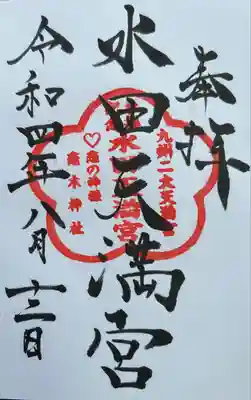 奉拝
水田天満宮
九州二大天満宮
水田天満宮
♡恋の神様
恋木神社
令和四年八月十三日